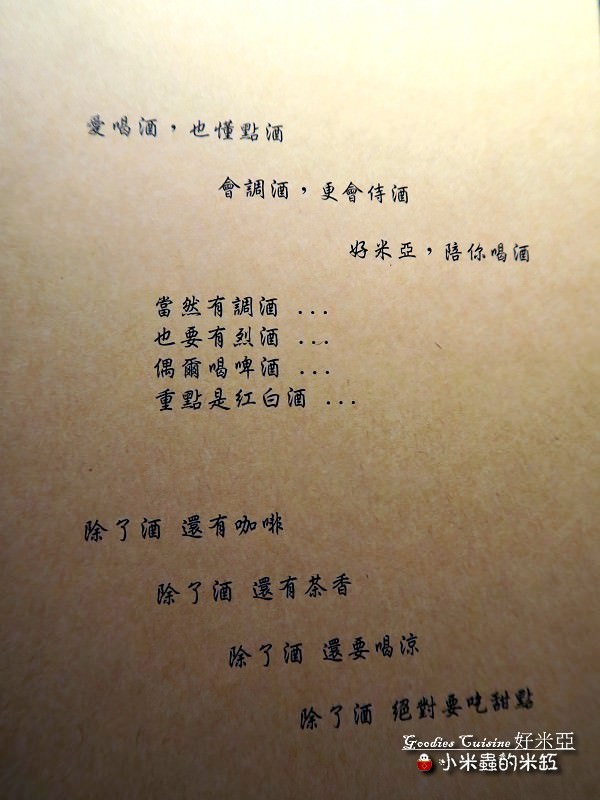 愛喝酒，也懂點酒
會調酒，更會侍酒
好米亞，陪你喝酒
當然有調酒 ...
也要有烈酒 ...
偶爾喝啤酒 ...
重點是紅白酒 ...
除了酒 還有咖啡
除了酒 還有茶香
除了酒 還要喝涼
除了酒 絕對要吃甜點
Goodies Cuisine 好米亞
小米蟲的米缸